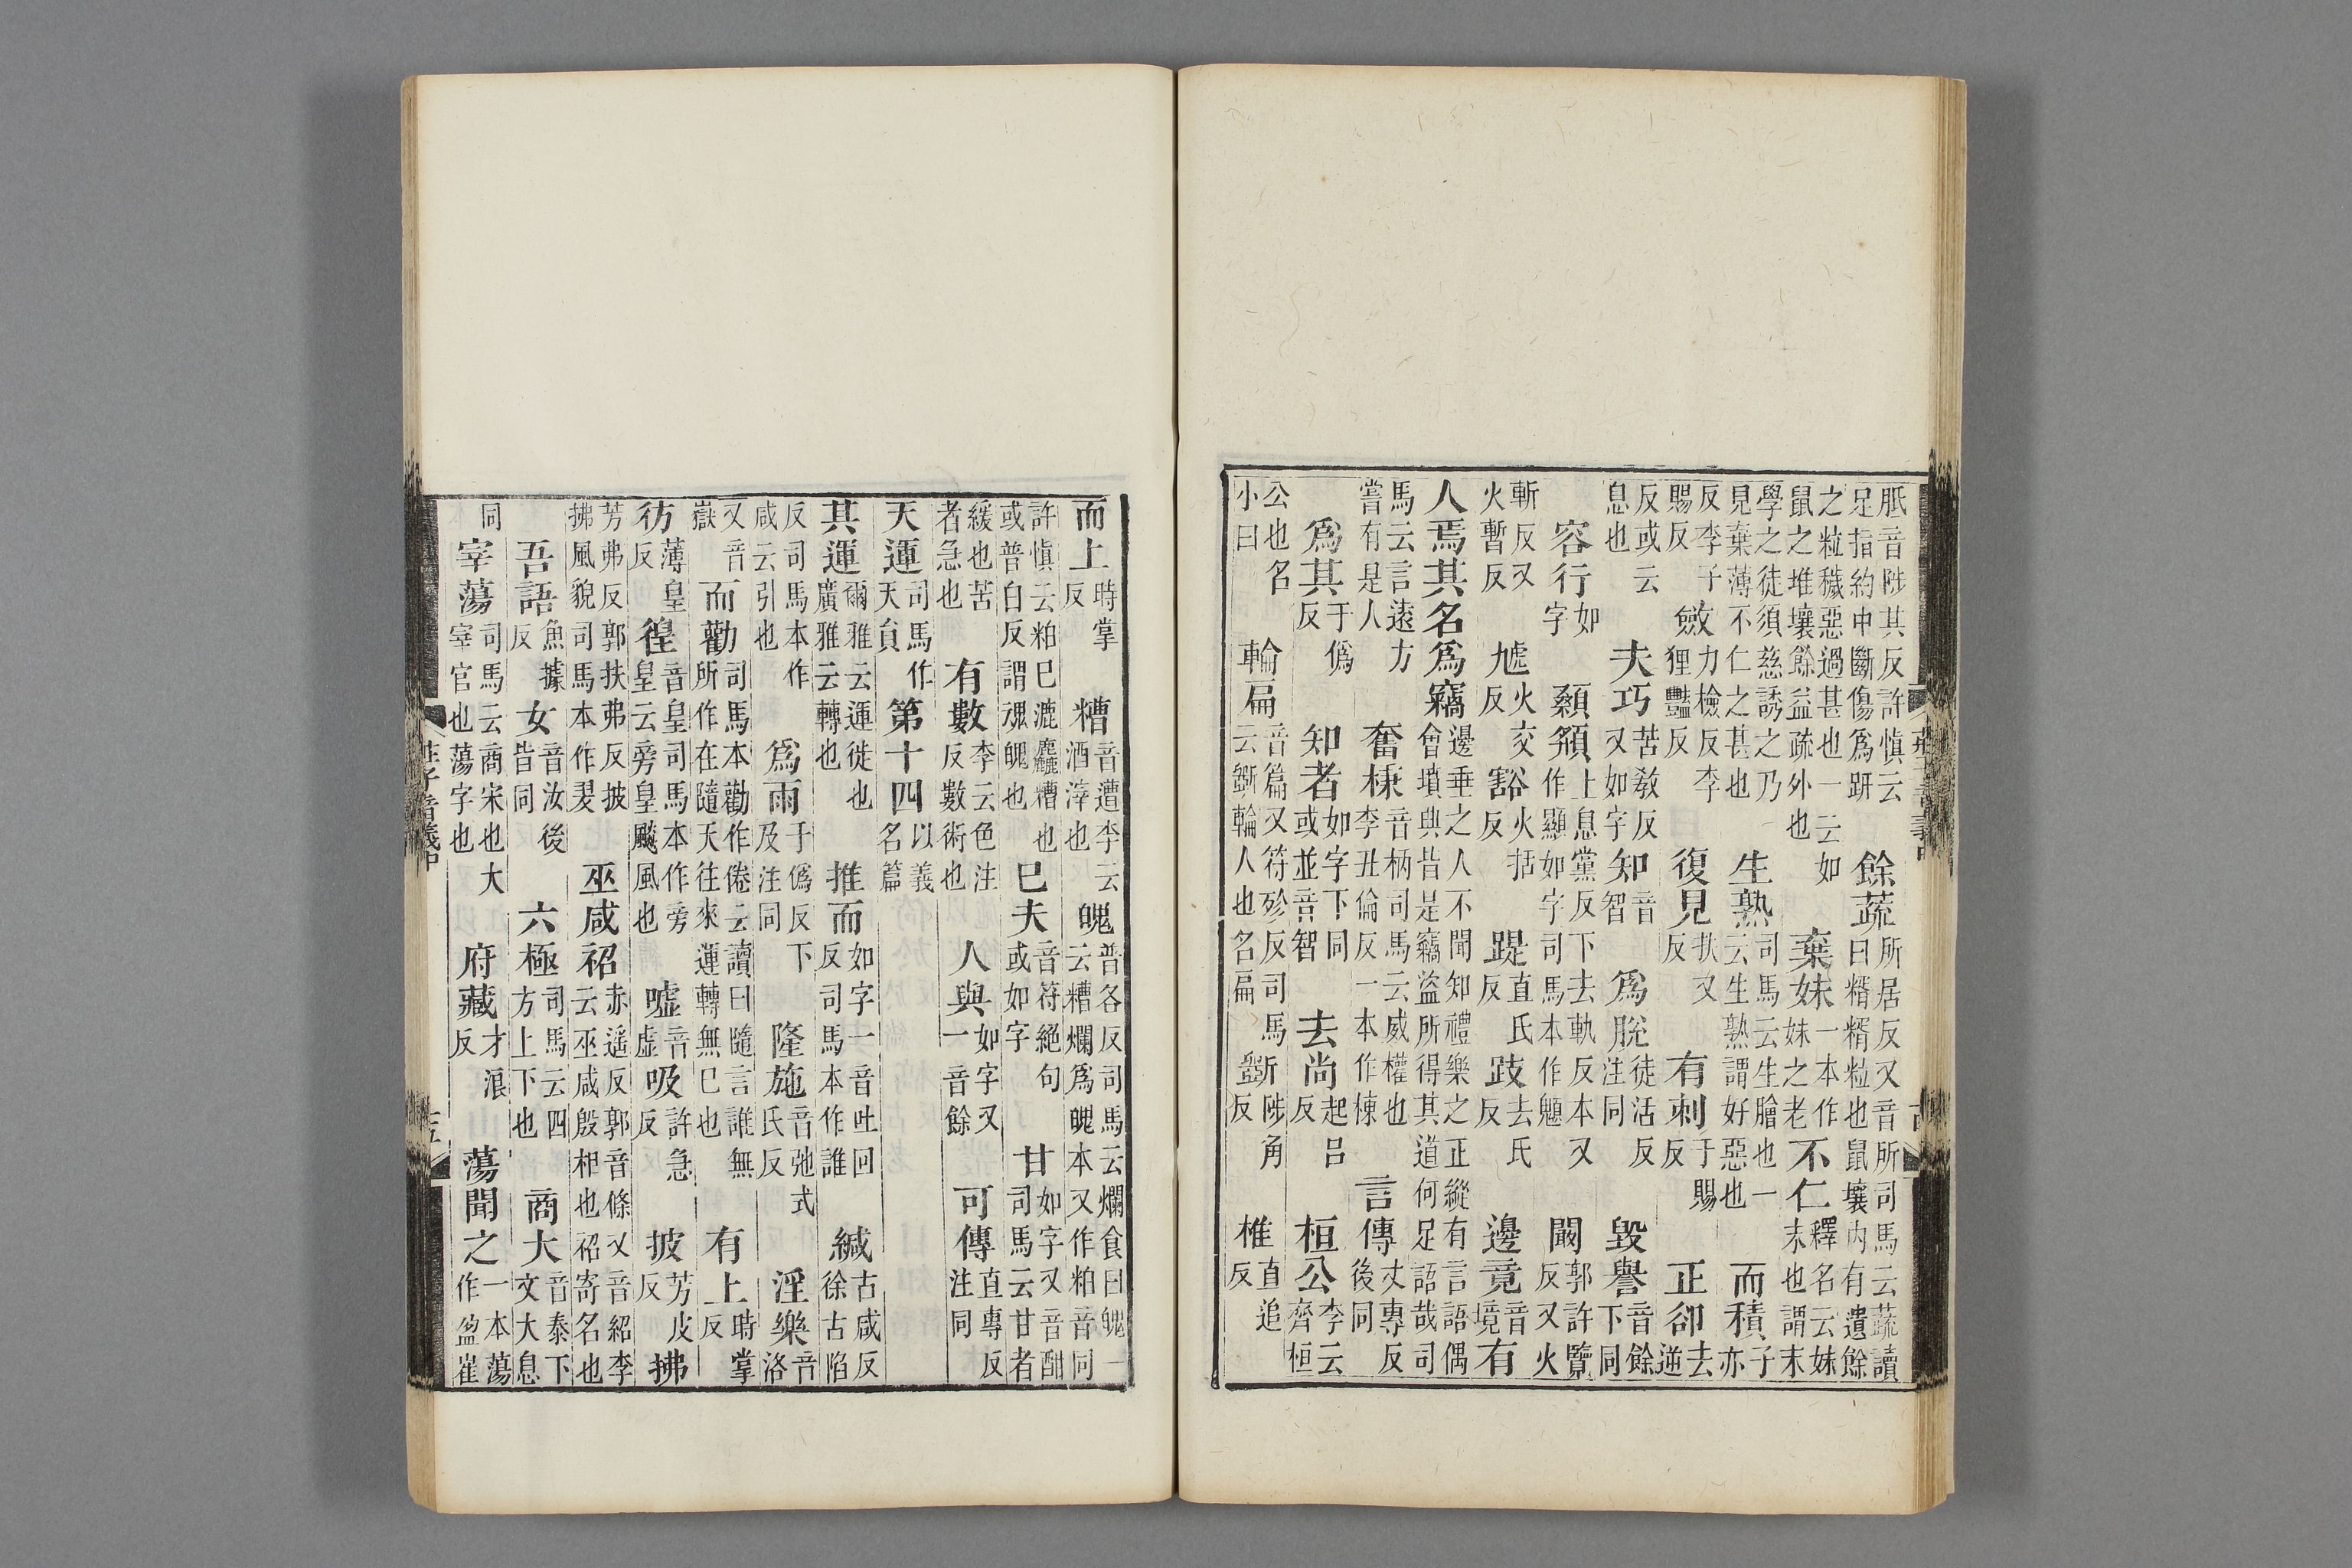 胝音陟其反許慎云足指約中斷傷為趼餘蔬所居反又音所司馬云蔬讀曰糈糈粒也鼠壤内有遺餘
之粒穢惡過甚也一云如鼠之堆壤餘益疏外也棄妹一本作妹之老不仁釋名云妹末也謂末
學之徒須慈誘之乃見棄薄不仁之甚也生熟司馬云生膾也一云生熟謂好惡也而積子亦
反李子賜反斂力檢反李狸豔反復見扶又反有刺于賜反正卻去逆
反或云息也夫巧苦教反又如字知音智為脫徒活反注同毀譽音餘下同
容行如字顙頯上息黨反下去軌反本又作顯如字司馬本作闞郭許覽反又火
斬反又火暫反虓火交反豁火括反踶直氏反跂去氏反邊竟音境有
人焉其名為竊邊垂之人不聞知禮樂之正縱有言語偶會墳典皆是竊盜所得其道何足語哉司
馬云言遠方嘗有是人奮棅音柄司馬云威權也李丑倫反一本作棟言傳丈專反後同
為其于偽反知者如字下同或並音智去尚起呂反桓公李云齊桓
公也名小白輪扁音篇又符殄反司馬云斲輪人也名扁斲陟角反椎直追反
而上時掌反糟音遭李云酒滓也魄普各反司馬云爛食曰魄一云糟爛為魄本又作粕音同
許慎云粕已漉麤糟也或普白反謂䰟魄也已夫音符絕句或如字甘如字又音酣司馬云甘者
緩也苦者急也有數李云色注反數術也人與如字又一音餘可傳直專反注同
天運司馬作天員第十四以義名篇
其運爾雅云運徙也廣雅云轉也推而如字一音吐回反司馬本作誰緘古咸反徐古陷
反司馬本作咸云引也為雨于偽反下及注同隆施音弛式氏反淫樂音洛
又音嶽而勸司馬本勸作倦云讀曰隨言誰無所作在隨天往來運轉無已也有上時掌反
彷薄皇反徨音皇司馬本作旁皇云旁皇飇風也噓音虛吸許急反披芳皮反拂
芳弗反郭扶弗反披拂風貌司馬本作翇巫咸祒赤遙反郭音條又音紹李云巫咸殷相也祒寄名也
吾語魚據反女音汝後皆同六極司馬云四方上下也商大音泰下文大息
同宰蕩司馬云商宋也大宰官也蕩字也府藏才浪反蕩聞之一本蕩作盈崔
莊子音義中
十五